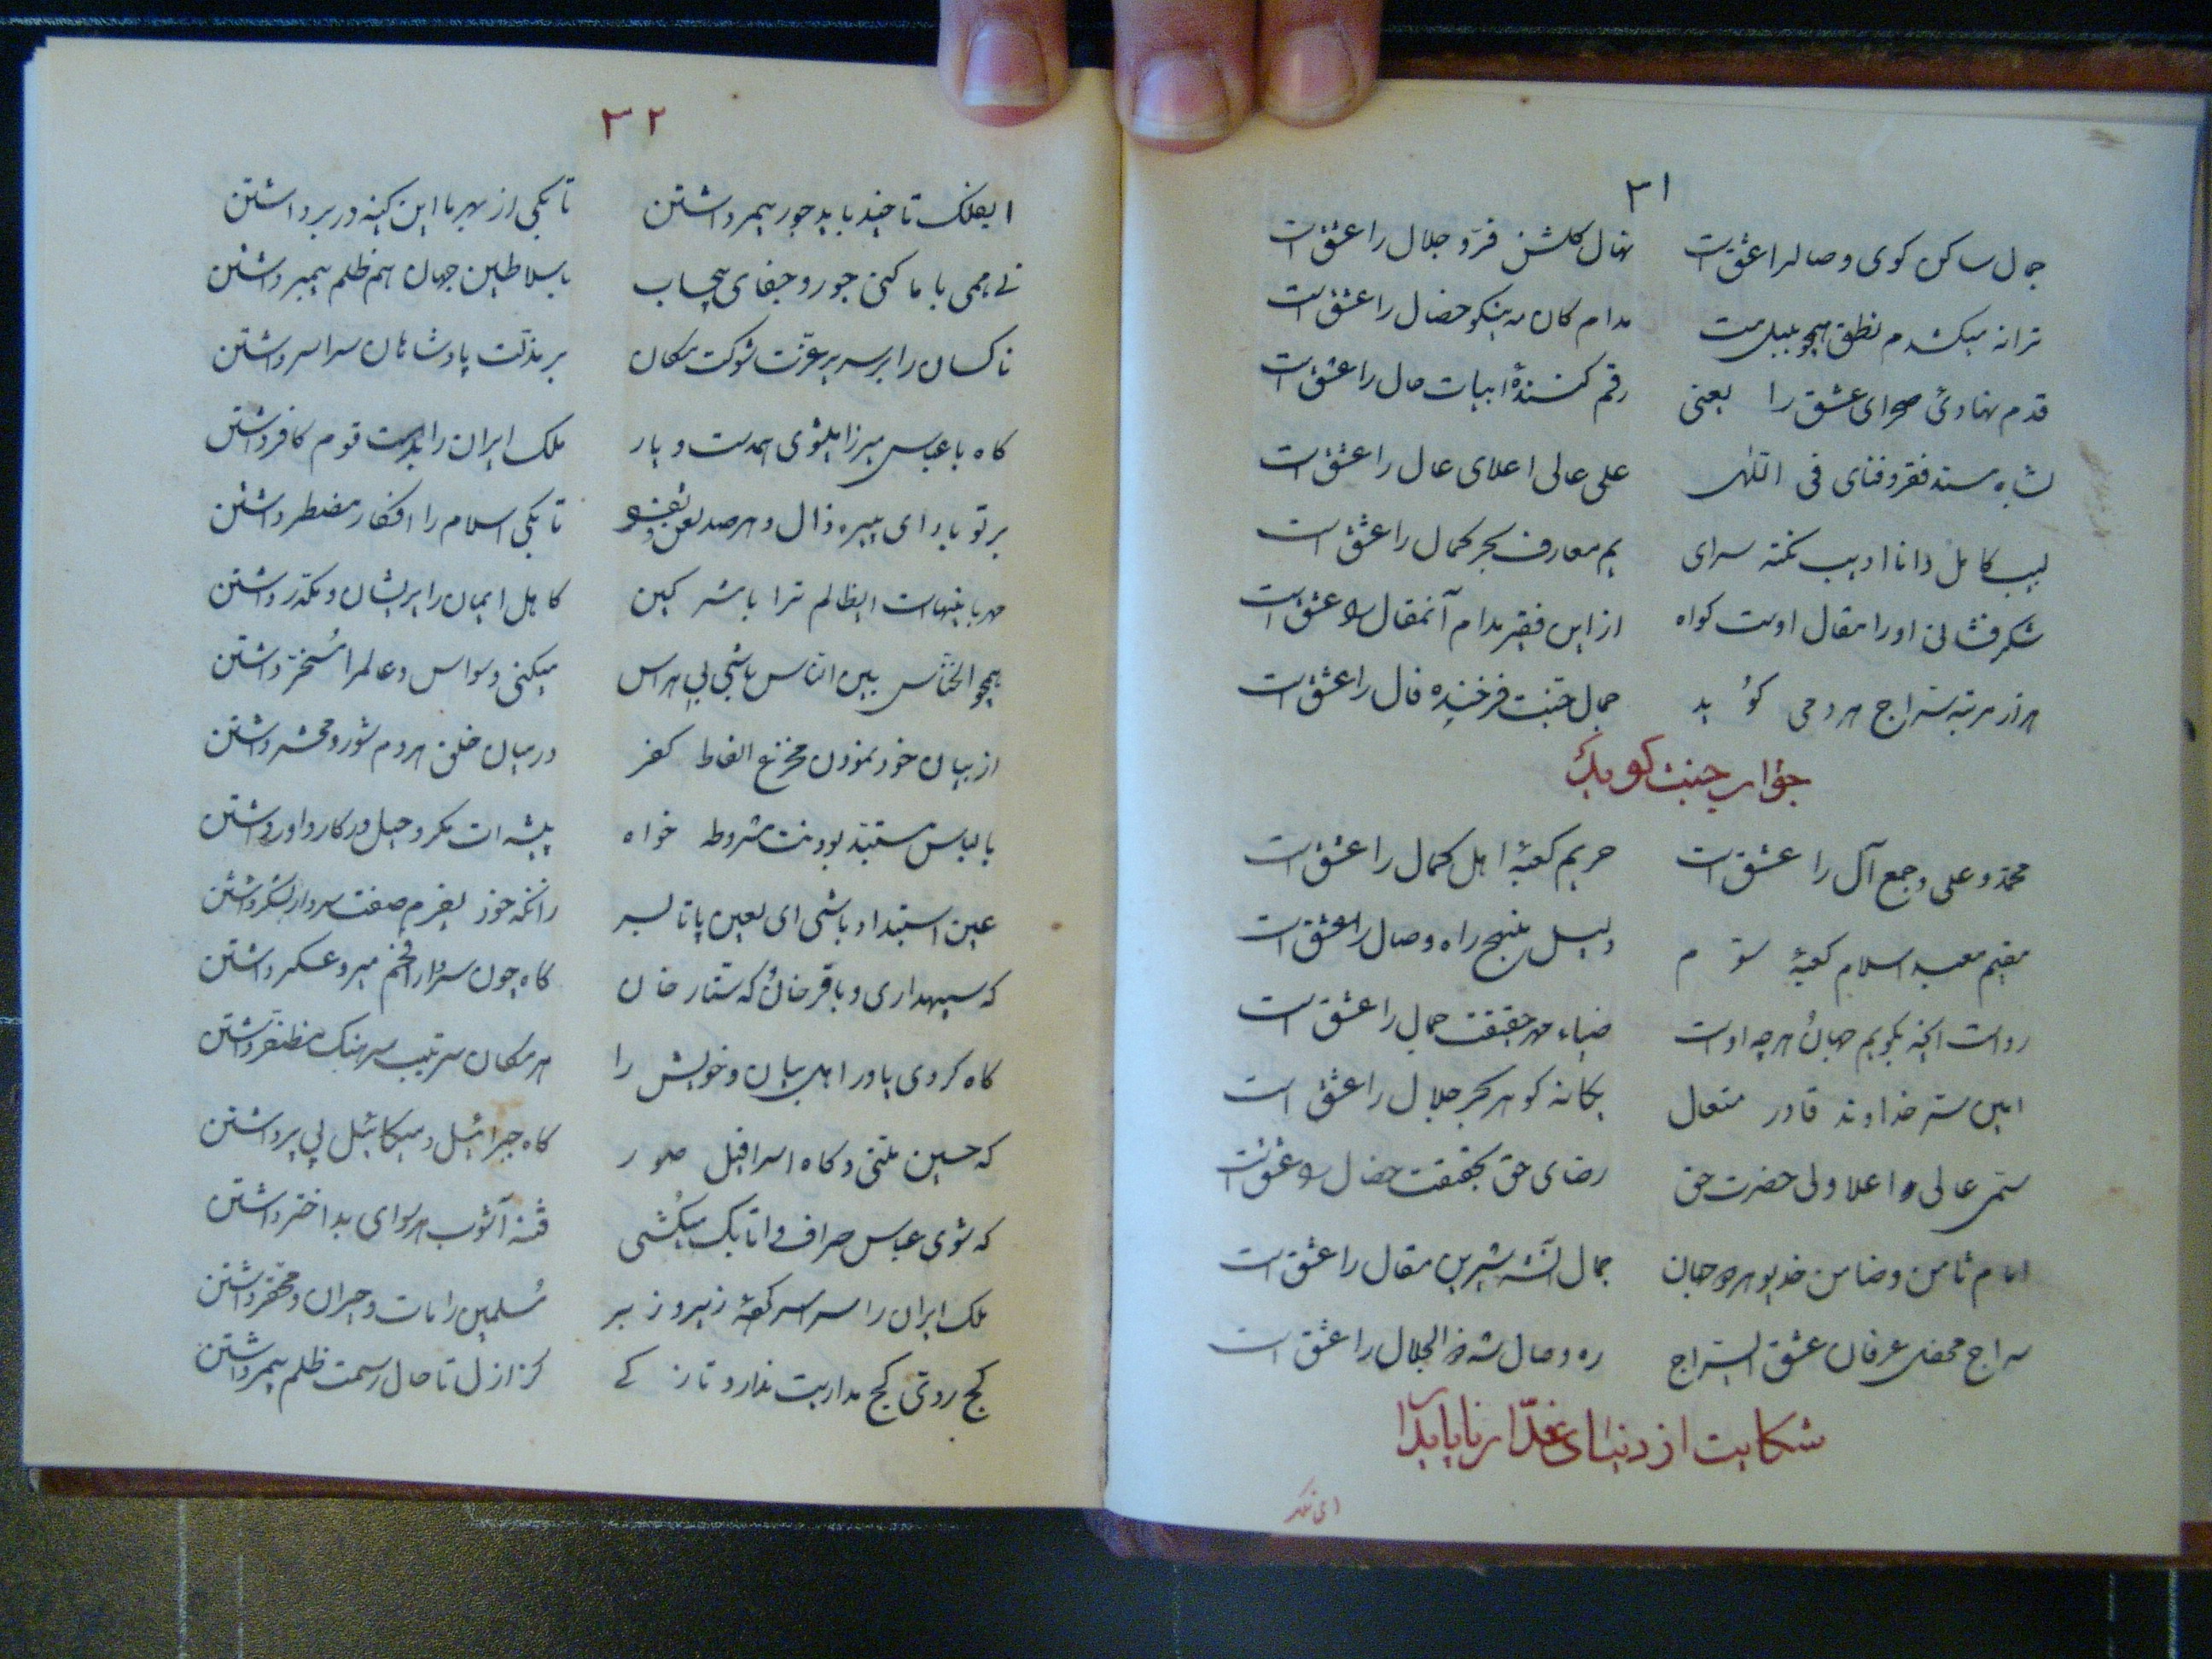 ۳۱
جمال ساکن کوی وصالرا عشق است نهال گلشن فرّ و جلال را عشق است
ترانه میکشدم نطق همچو بلبل مست مدام کان نیکو خصال را عشق است
قدم نهادئ صحرای عشق را یعنی رقم کنندهٔ ابیات حال را عشق است
شاه مسند فقر و فنای فی اللهی علی عالی اعلای عال را عشق است
لبیب کامل دانا ادیب نکته سرای یم معارف بحر کمال را عشق است
شکرفشانی او را مقال اوست کواه از این فقیر مدام آنمقال را عشق است
هزار مرتبه سراج هر دمی کوید جمال جنت فرخنده فال را عشق است
جواب جنت کوید
محمد و علی و جمع آل را عشق است حریم کعبهٔ اهل کمال را عشق است
مقیم معبد اسلام کعبهٔ سوم دلیل منهج راه وصال را عشق است
رواست آنچه بکویم جهان هر چه اوست ضیاء مهر حقیقت جمال را عشق است
امین سر خداوند قادر متعال یکانه کوهر بحر جلال را عشق است
سمی عالی و اعلا ولی حضرت حق رضای حق بحقیقت خصال را عشق است
امام ثامن و ضامن خدیو هر دو جهان جمال آنشه شیرین مقال را عشق است
سراج محفل عرفان عشق السراج ره وصال شه ذوالجلال را عشق است
شکایت از دنیای غدّار ناپایدار
ای فلک
۳۲
ایفلک تا چند باید جور بیمر داشتن تا بکی از بهر ما این کینه در بر داشتن
نی همی با ما کنی جور و جفای بیحساب با سلاطین جهان هم ظلم بیمر داشتن
ناکسان را بر سریر عزّت شوکت مکان بر مذلت پادشاهان سراسر داشتن
کاه با عباس میرزا میشوی همدست و یار ملک ایران را بدست قوم کافر داشتن
بر تو باد ای پیره زال دهر صد لعن تا بکی اسلام را افکار مضطر داشتن
مهربانیهات ایظالم ترا باشد کین کاهل ایمان را پریشان و مکدّر داشتن
همچو الخنّاس بین النّاس باشی بی هراس میکنی وسواس و عالمرا مُسخّر داشتن
از بیان خود نمودن مخترع الفاظ کفر در میان خلق هر دم شور و محشر داشتن
با لباس مستبد بودنت مشروطه خواه پیشه ات مکر و حیل در کار داور داشتن
عین استبداد باشی ای لعین پا تا بسر زانکه خود بفرم صفت سردار لشکر داشتن
که سپهداری و باقرخان که ستّارخان کاه چون سردار افخم میر و عسکر داشتن
کاه کردی یاور اهل بیان و خویش را هر مکان سرتیب سرهنک مظفّر داشتن
که حسین ملتی و کاه اسرافیل صور کاه جبرائیل و میکائیل بی پر داشتن
که شوی عباس صراف و اتابک میکُشی فتنه آشوب هر سو ای بد اختر داشتن
ملک ایران را سراسر کردهٔ زیر و زبر مُسلمین را مات و حیران و محقّر داشتن
کج روی کج مداریت ندارد تازکی کز ازل تا حال رسمت ظلم بیمر داشتن